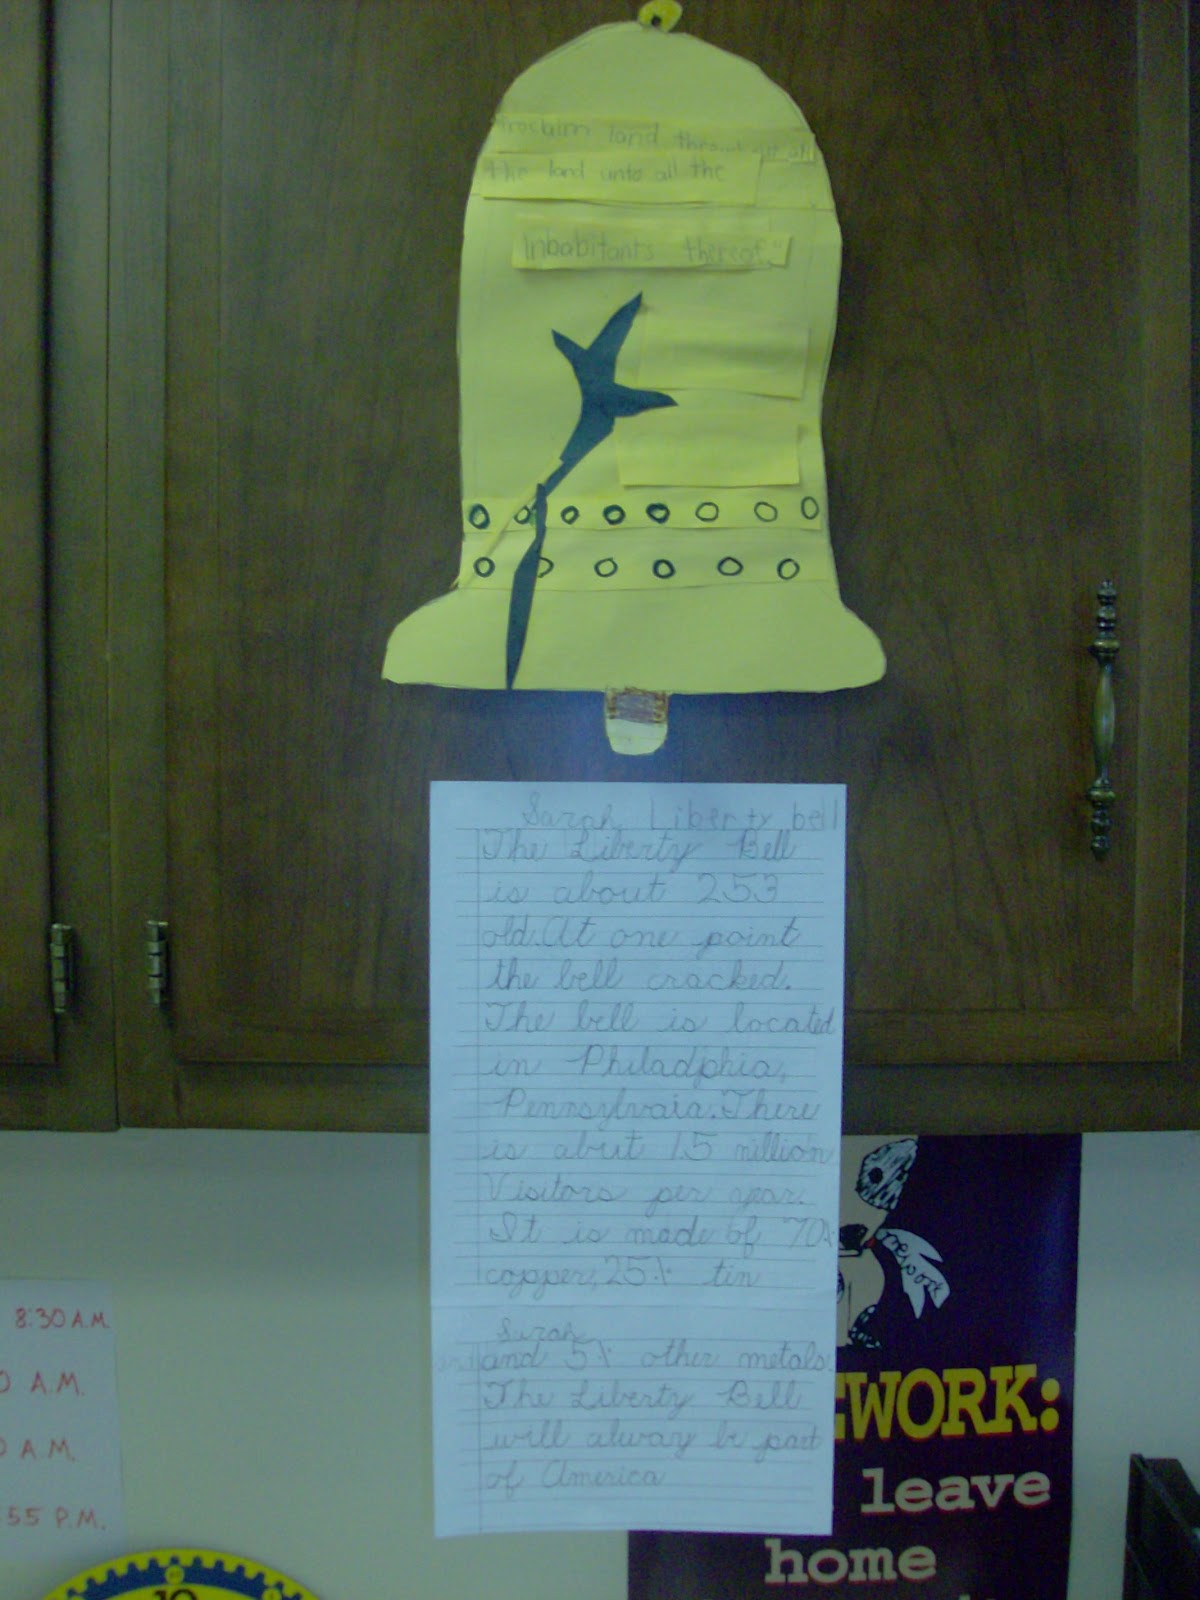 Proclaim land throughout all
the land unto all the
Inhabitants thereof."
Sarah Liberty bell
The Liberty Bell
is about 253
old. At one point
the bell cracked.
The bell is located
in Philadphia,
Pennsylvaia. There
is abut 1.5 million
Visitors per
It is made of 70%
copper, 25% tin
Sarah
and 5% other metals.
The Liberty Bell
will alway be part
of America
8:30 A.M.
0 A.M.
0 A.M.
55 P.M.
10
EWORK:
leave
home